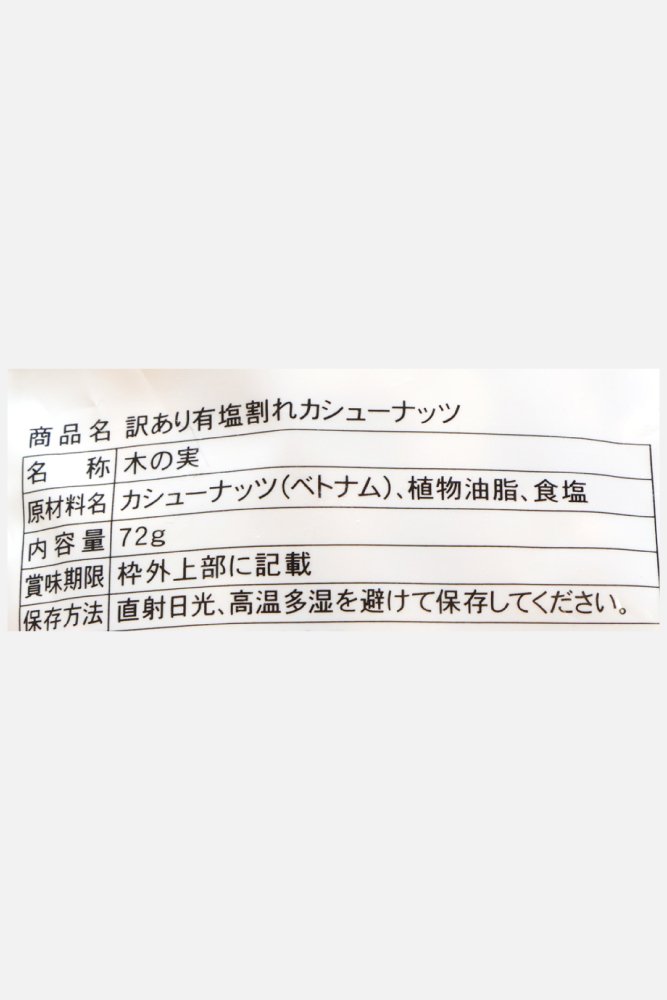 商品名 訳あり有塩割れカシューナッツ
名 称 木の実
原材料名 カシューナッツ(ベトナム)、植物油脂、食塩
内容量 72g
賞味期限 枠外上部に記載
保存方法 直射日光、高温多湿を避けて保存してください。